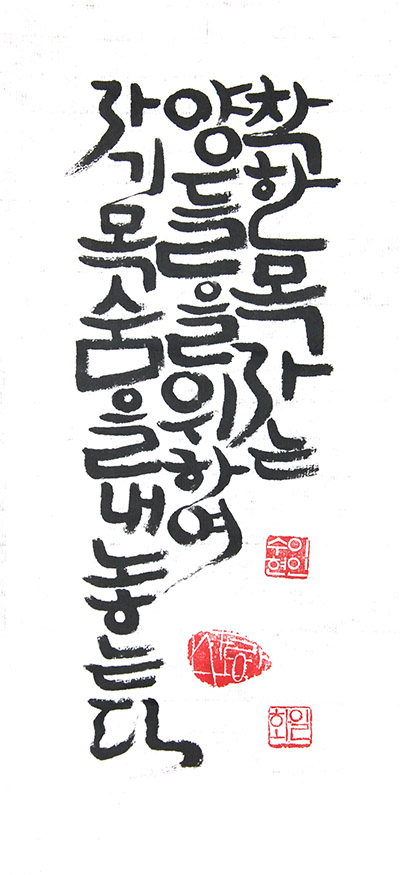 착한 목자는
양들을 위하여
자기 목숨을 내놓는다
이인수현
일회